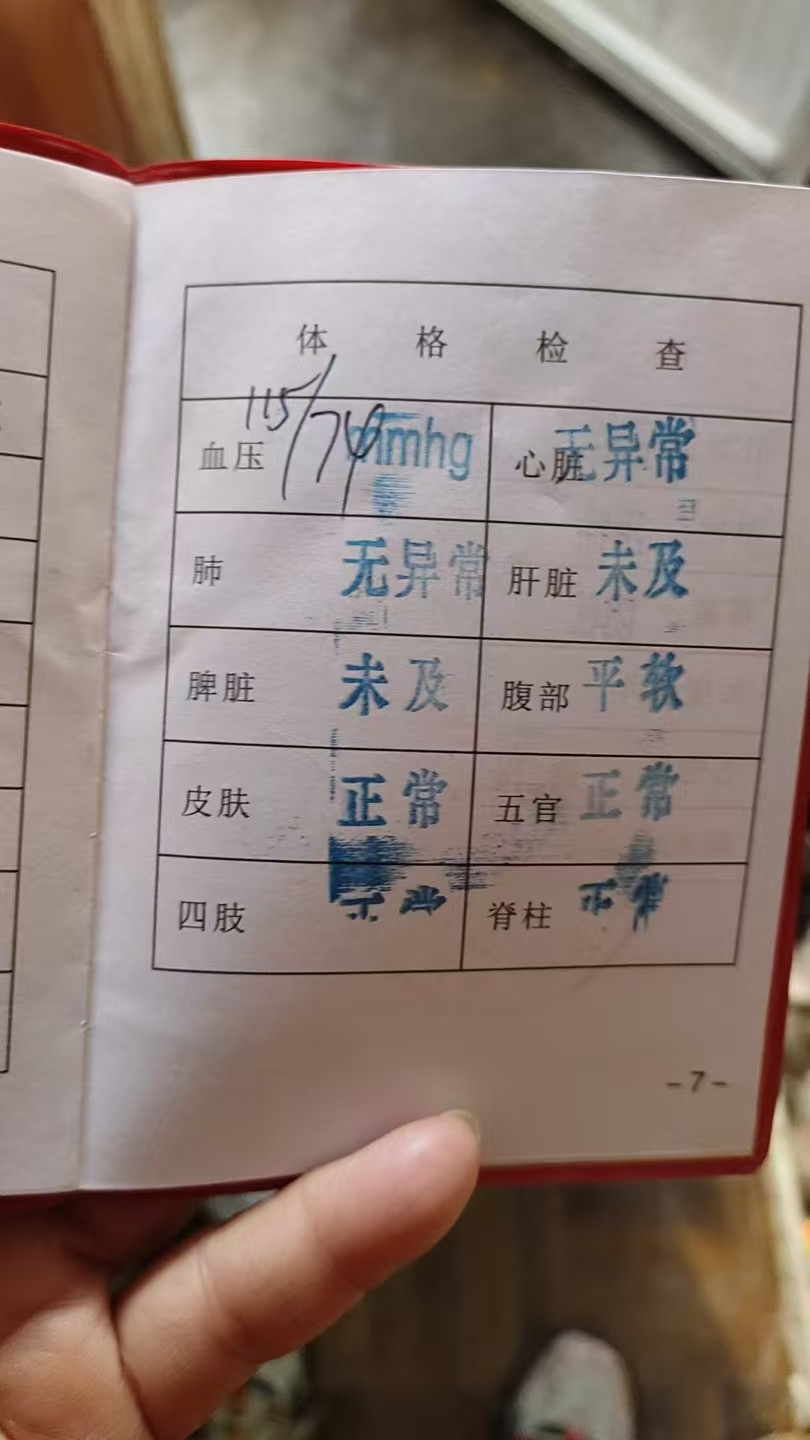 体格检查
血压 115/74 mmhg 心脏 无异常
肺 无异常 肝脏 未及
脾脏 未及 腹部 平软
皮肤 正常 五官 正常
四肢 正常 脊柱 正常
-7-